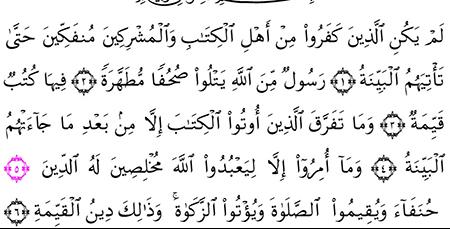 لَمْ يَكُنِ ٱلَّذِينَ كَفَرُوا۟ مِنْ أَهْلِ ٱلْكِتَـٰبِ وَٱلْمُشْرِكِينَ مُنفَكِّينَ حَتَّىٰ
تَأْتِيَهُمُ ٱلْبَيِّنَةُ ﴿١﴾ رَسُولٌ مِّنَ ٱللَّهِ يَتْلُوا۟ صُحُفًا مُّطَهَّرَةً ﴿٢﴾ فِيهَا كُتُبٌ
قَيِّمَةٌ ﴿٣﴾ وَمَا تَفَرَّقَ ٱلَّذِينَ أُوتُوا۟ ٱلْكِتَـٰبَ إِلَّا مِنۢ بَعْدِ مَا جَآءَتْهُمُ
ٱلْبَيِّنَةُ ﴿٤﴾ وَمَآ أُمِرُوٓا۟ إِلَّا لِيَعْبُدُوا۟ ٱللَّهَ مُخْلِصِينَ لَهُ ٱلدِّينَ ﴿٥﴾
حُنَفَآءَ وَيُقِيمُوا۟ ٱلصَّلَوٰةَ وَيُؤْتُوا۟ ٱلزَّكَوٰةَ ۚ وَذَٰلِكَ دِينُ ٱلْقَيِّمَةِ ﴿٦﴾